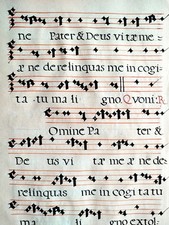 ne Pater & Deus vitæ me=
æ ne derelinquas me in cogi=
ta tu ma li gno. Quoni: R
Omine Pa ter &
De us vi tæ me æ ne de=
relinquas me in cogi ta tu
ma li gno extol: